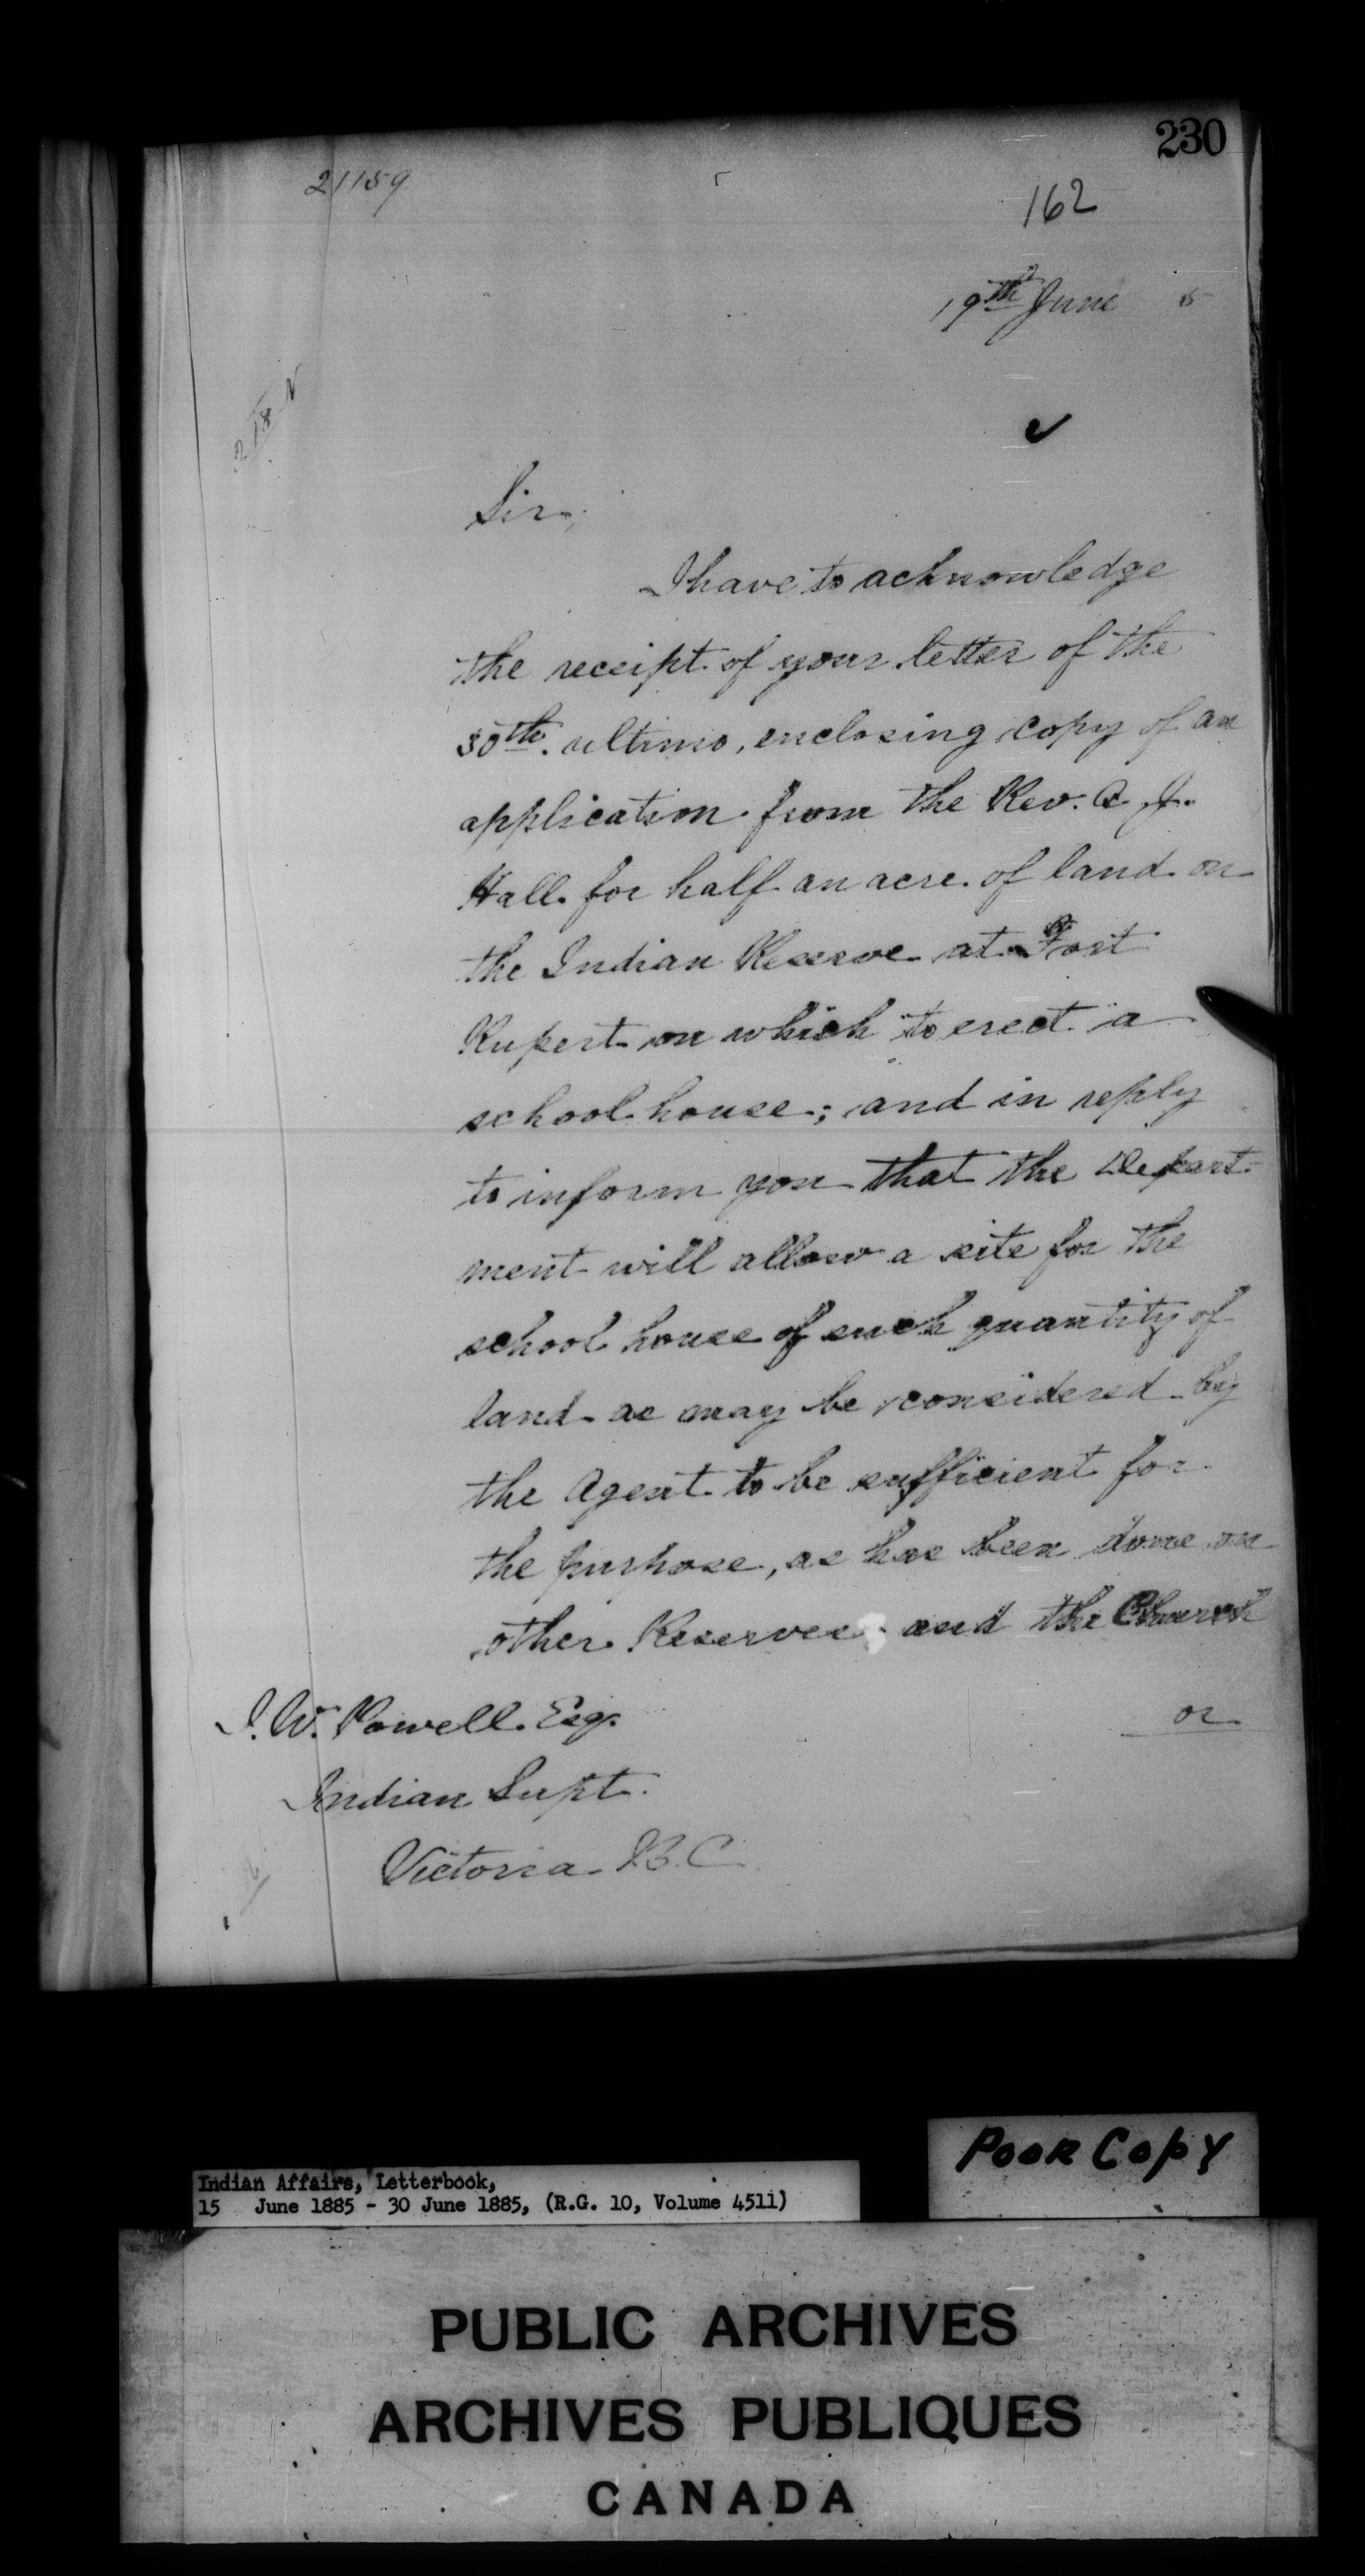 230
21159
162
19th June 5
Sir,
I have to acknowledge
the receipt of your letter of the
30th. ultimo, enclosing copy of an
application from the Rev. A. J.
Hall for half an acre of land on
the Indian Reserve at Fort
Rupert on which to erect a
school house; and in reply
to inform you that the Depart-
ment will allow a site for the
school house of such quantity of
land as may be considered by
the Agent to be sufficient for
the purpose, as has been done on
other Reserves and the Church
or
I. W. Powell. Esq.
Indian Supt.
Victoria B.C.
Poor Copy
Indian Affairs, Letterbook,
15 June 1885 - 30 June 1885, (R.G. 10, Volume 4511)
PUBLIC ARCHIVES
ARCHIVES PUBLIQUES
CANADA